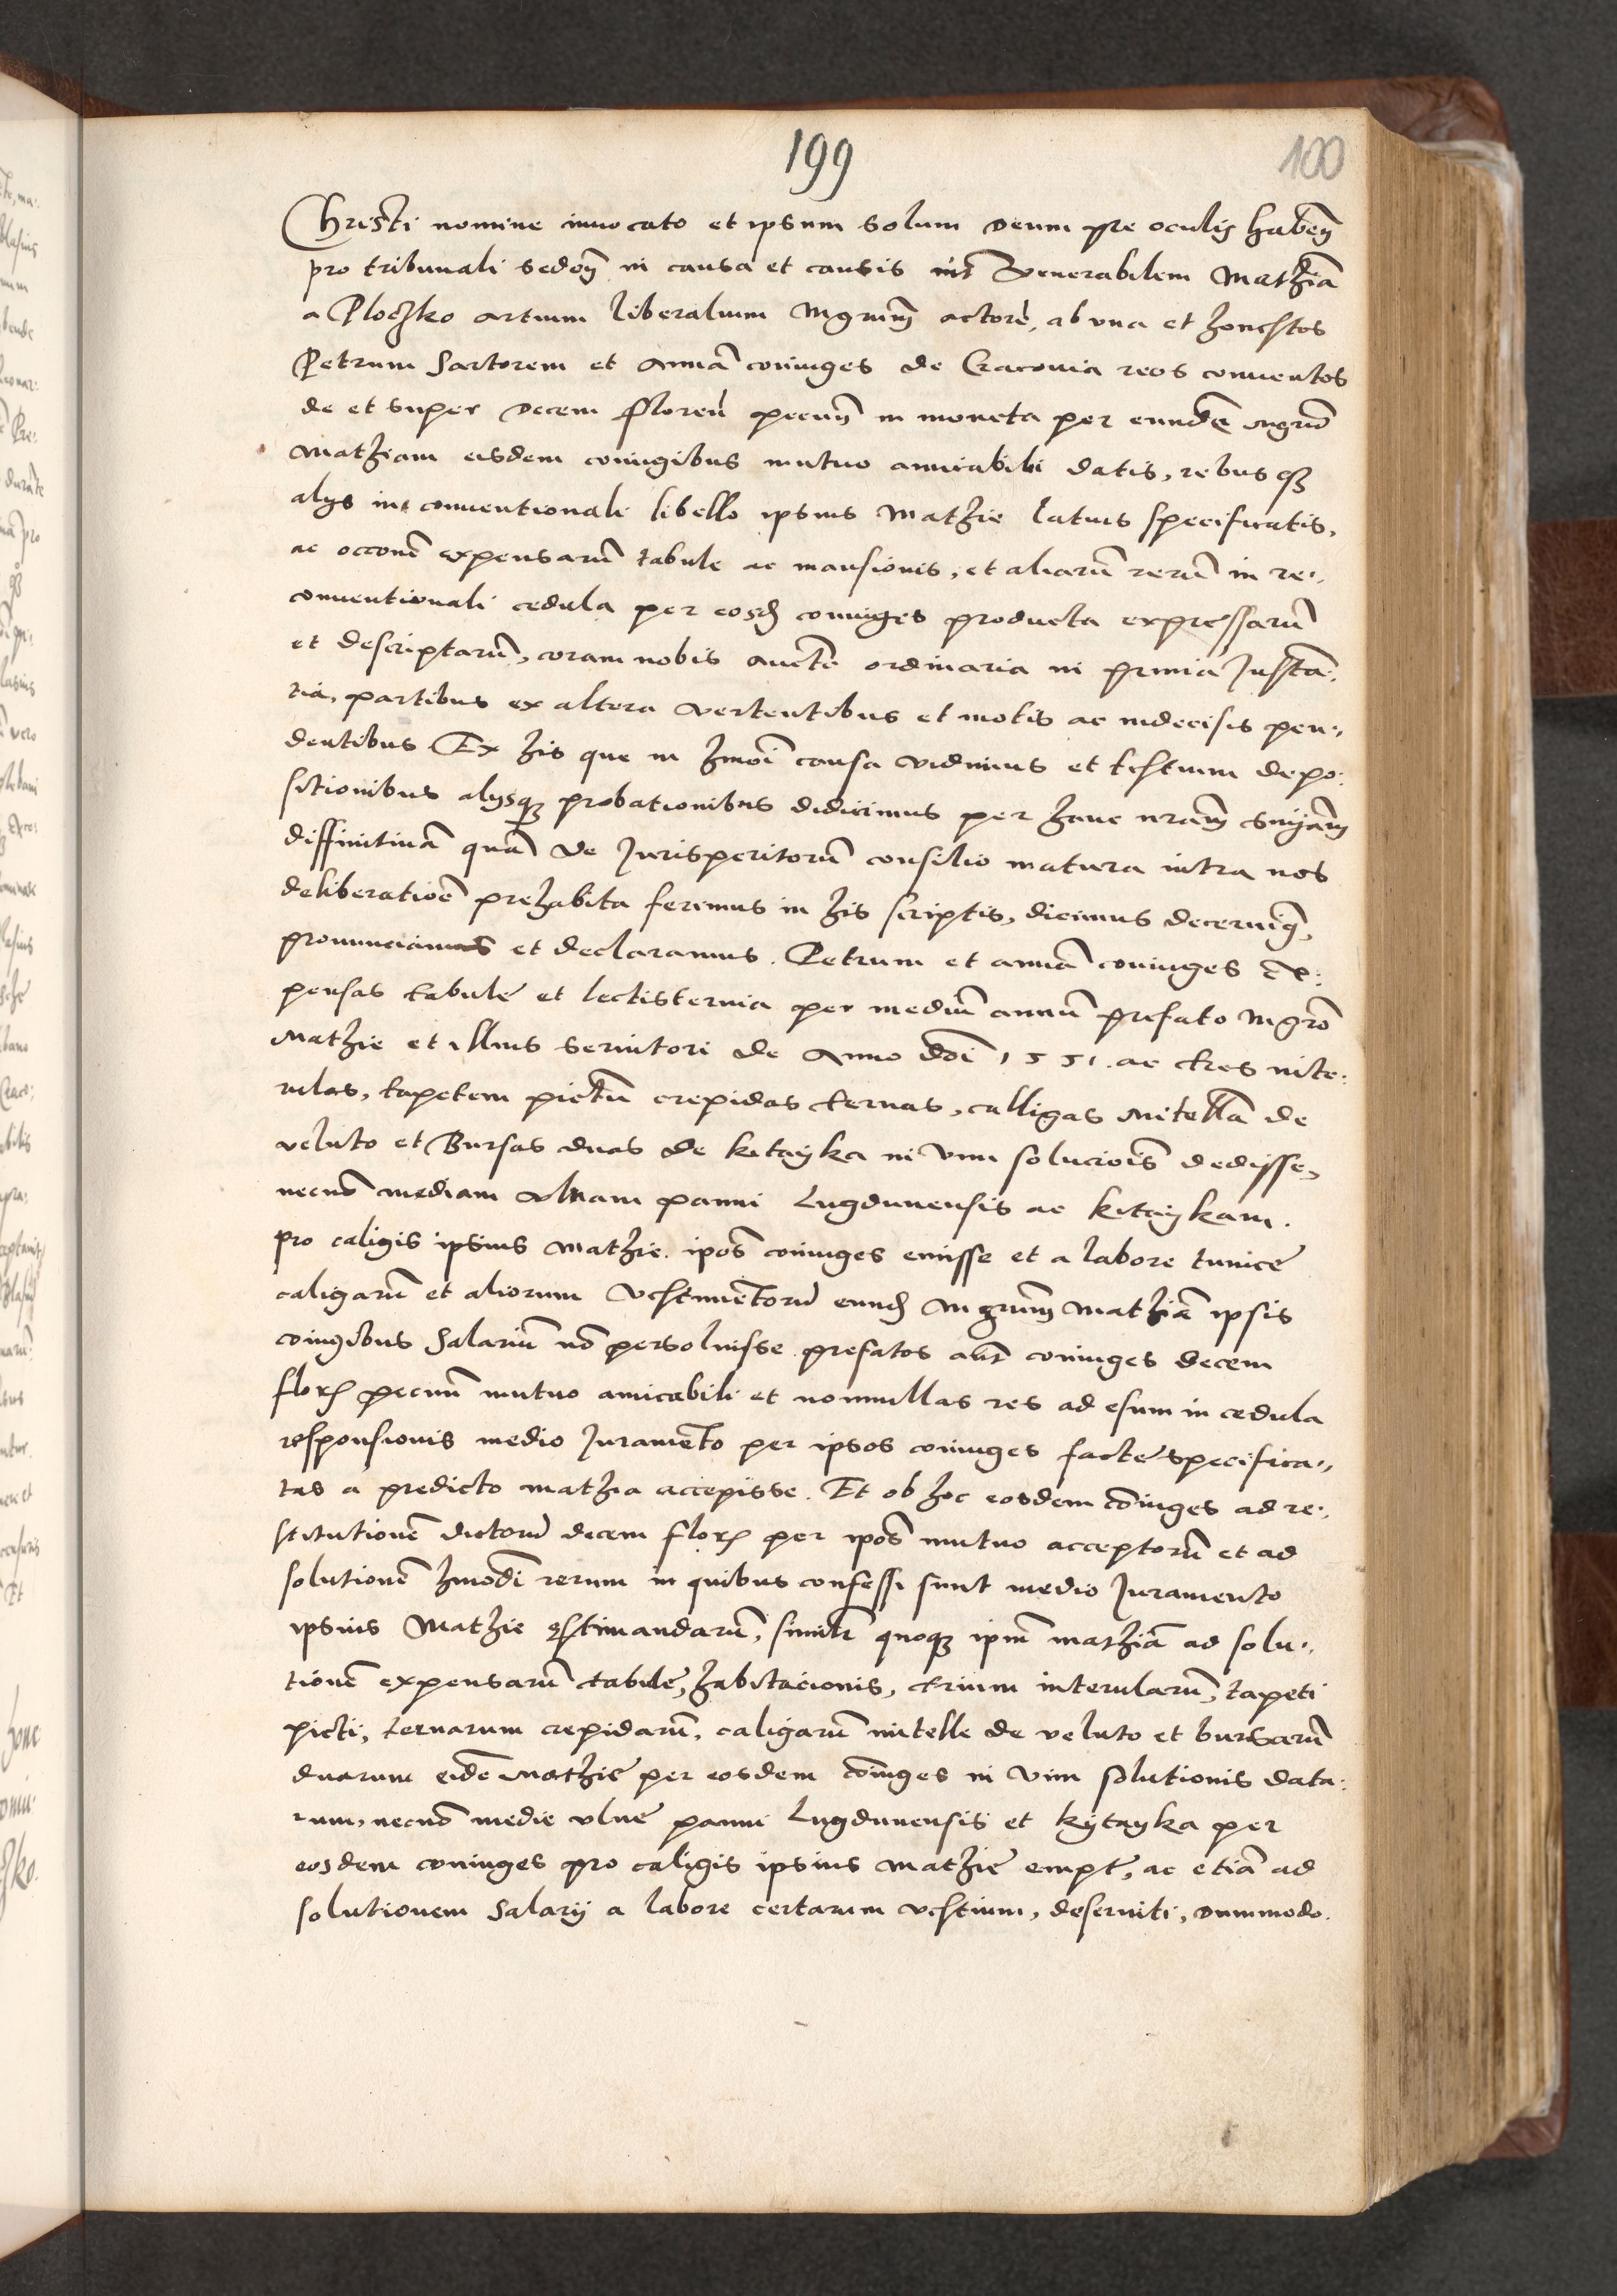 199
100
Christi nomine invocato et ipsum solum deum pre oculis haben̄
pro tribunali seden̄ in causa et causis int̄ Venerabilem Mathiā
a Ploczko artium liberalium Mgrum̄ actorē, ab una et honestos
Petrum Sartorem et Annā coniuges de Cracovia reos conventos
de et super decem floren̄ pecun̄ in moneta per eundē mgrū
Mathiam eisdem coniugibus mutuo amicabili datis, rebusqȝ
alys in conventionali libello ipsius Mathie latius specificatis,
ac occōne expensarū tabule ac mansionis, et aliarū rerū in re.,
conventionali cedula per eosd coniuges producta expressarū
et descriptarū, coram nobis auctē ordinaria in prima Instā:
tia, partibus ex altera vertentibus et motis ac indecisis pen.,
dentibus Ex his que in hmōi causa vidimus et testium depo:
sitionibus alysqȝ probationibus didicimus per hanc nrām snīam
diffinitivā quā de Jurisperitorū consilio matura intra nos
deliberatiōe prehabita ferimus in his scriptis, dicimus decernimꝰ,
pronunciamus et declaramus. Petrum et annā coniuges ex:
pensas tabule et lectisternia per mediū annū prefato Mgrō
Mathie et illius servitori de Anno doī 1551. ac tres inte:
rulas, tapetem pictū crepidas ternas, calligas mitellā de
veluto et Bursas duas de kitayka in vim soluciōis dedisse,
necnō mediam ulnam panni Lugdunensis ac kitaykam.
pro caligis ipsius Mathie. ipōs coniuges emisse et a labore tunice
caligarū et aliorum Vestimentorū eund Mgrum̄ Mathiā ipsis
coniugibus salariū nō persolvisse. prefatos aūt coniuges decem
flor pecun̄ mutuo amicabili et nonnullas res ad esum in cedula
responsionis medio Juramēto per ipsos coniuges facte specifica.,
tas a predicto mathia accepisse. Et ob hoc eosdem cōiuges ad re:
stitutionē dictorū decem flor per ipōs mutuo acceptorū et ad
solutionē hmōdi rerum in quibus confessi sunt medio Juramento
ipsius Mathie estimandarū, similr̄ quoqȝ ipm̄ mathiā ad solu.,
tionē expensarū tabule, habitacionis, trium interularū, tapeti
picti, ternarum crepidarū, caligarū mitelle de veluto et bursarū
duarum eidē Mathie per eosdem cōiuges in vim solutionis data:
rum, necnō medie ulne panni Lugdunensis et kytayka per
eosdem coniuges pro caligis ipsius Mathie empt, ac etiā ad
solutionem salarij a labore certarum vestium, deserviti, dummodo.